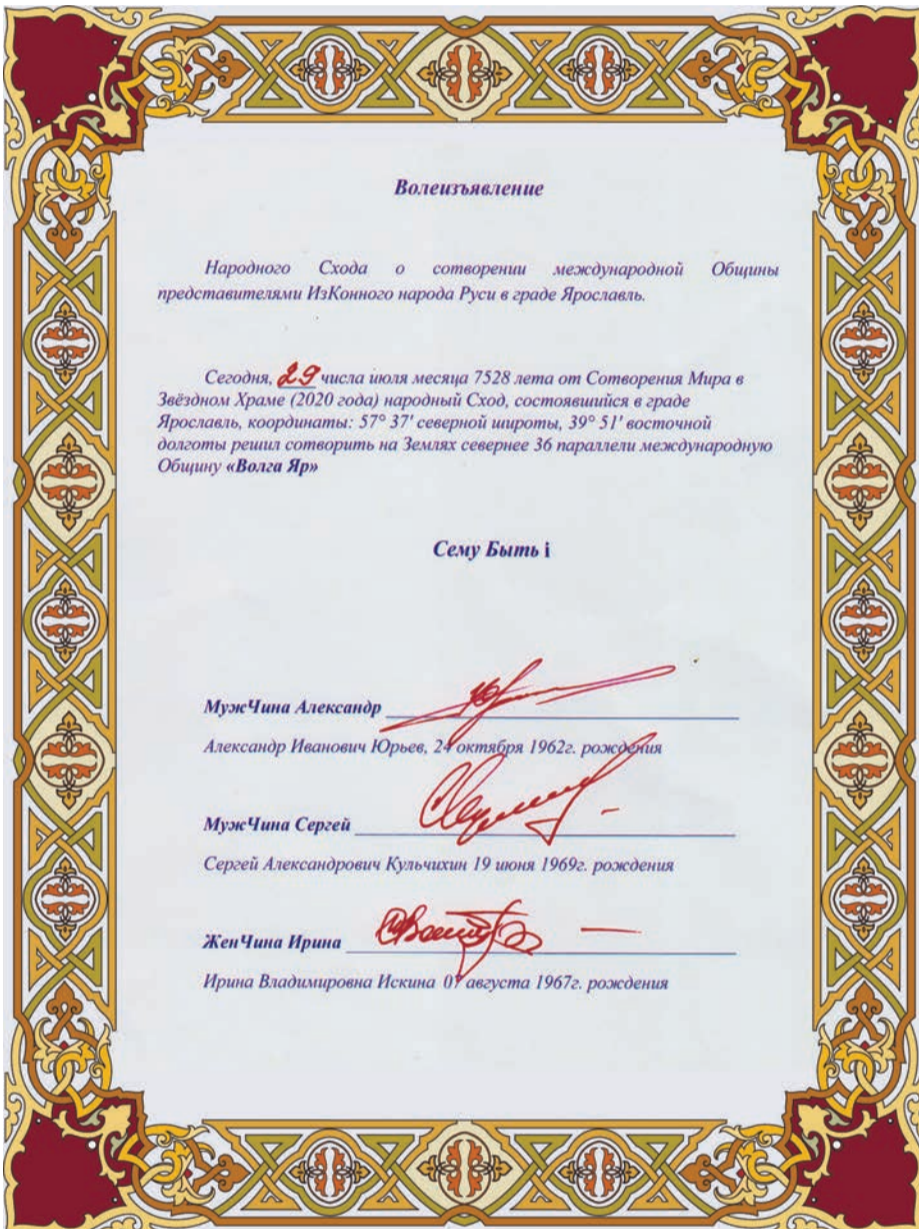 Волеизъявление
Народного Схода о сотворении международной Общины
представителями ИзКонного народа Руси в граде Ярославль.
Сегодня, 29 числа июля месяца 7528 лета от Сотворения Мира в
Звёздном Храме (2020 года) народный Сход, состоявшийся в граде
Ярославль, координаты: 57° 37' северной широты, 39° 51' восточной
долготы решил сотворить на Землях севернее 36 параллели международную
Общину «Волга Яр»
Сему Быть і
МужЧина Александр
Александр Иванович Юрьев, 24 октября 1962г. рождения
МужЧина Сергей
Сергей Александрович Кульчихин 19 июня 1969г. рождения
ЖенЧина Ирина
Ирина Владимировна Искина 07 августа 1967г. рождения